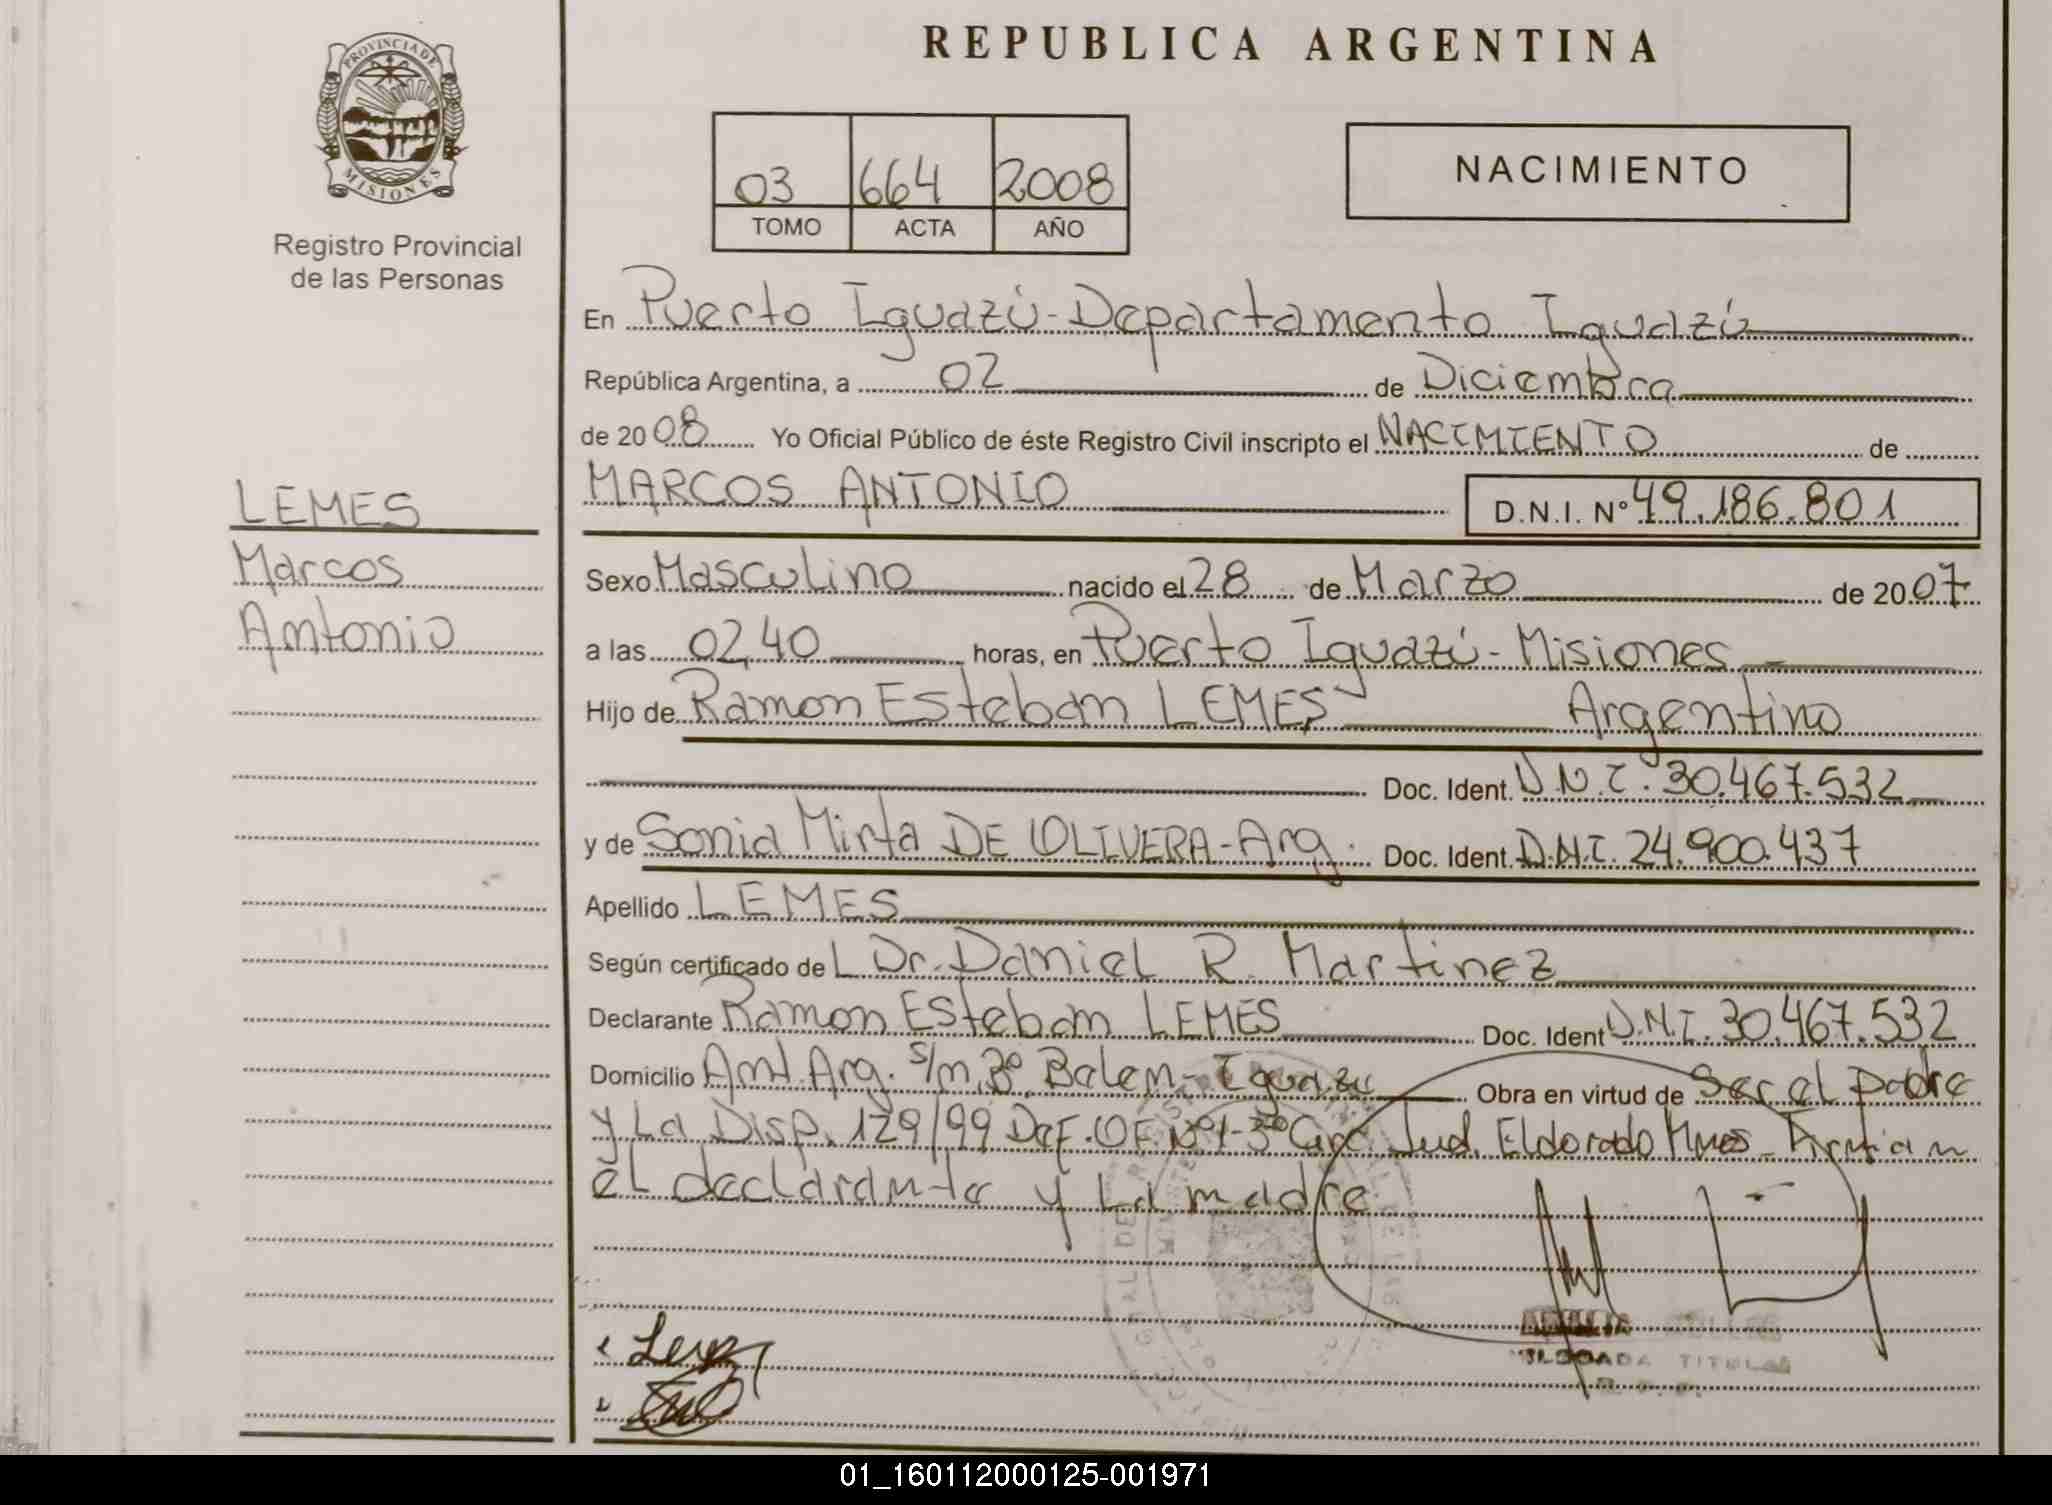 REPUBLICA ARGENTINA
PROVINCIA DE MISIONES
Registro Provincial
de las Personas
03 664 2008
TOMO ACTA AÑO
NACIMIENTO
En Puerto Iguazú - Departamento Iguazú
República Argentina, a 02 de Diciembre
de 2008 Yo Oficial Público de éste Registro Civil inscripto el NACIMIENTO de
MARCOS ANTONIO D.N.I. N° 49.186.801
LEMES
Marcos
Antonio
Sexo Masculino nacido el 28 de Marzo de 2007
a las 02,40 horas, en Puerto Iguazú - Misiones
Hijo de Ramon Esteban LEMES Argentino
Doc. Ident. D.N.I. 30.467.532
y de Sonia Mirta DE OLIVERA - Arg. Doc. Ident. D.N.I. 24.900.437
Apellido LEMES
Según certificado de L Dr. Daniel R. Martinez
Declarante Ramon Esteban LEMES Doc. Ident D.N.I. 30.467.532
Domicilio Ant. Arg. s/n, B° Belen - Iguazu Obra en virtud de Ser el padre
y La Disp. 129/99 Def. Of. N° 1 - 3° Circ. Jud. Eldorado Mnes - Firman
el declarante y La madre
TITULAR
01_160112000125-001971